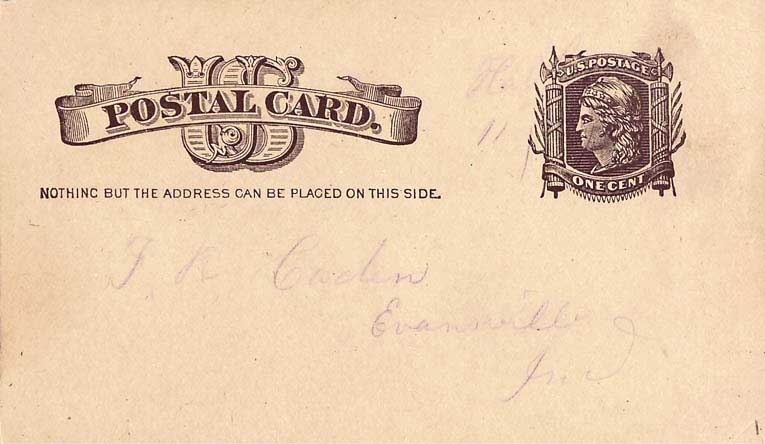 US
POSTAL CARD.
U.S. POSTAGE
ONE CENT
NOTHING BUT THE ADDRESS CAN BE PLACED ON THIS SIDE.
Evansville
Ind